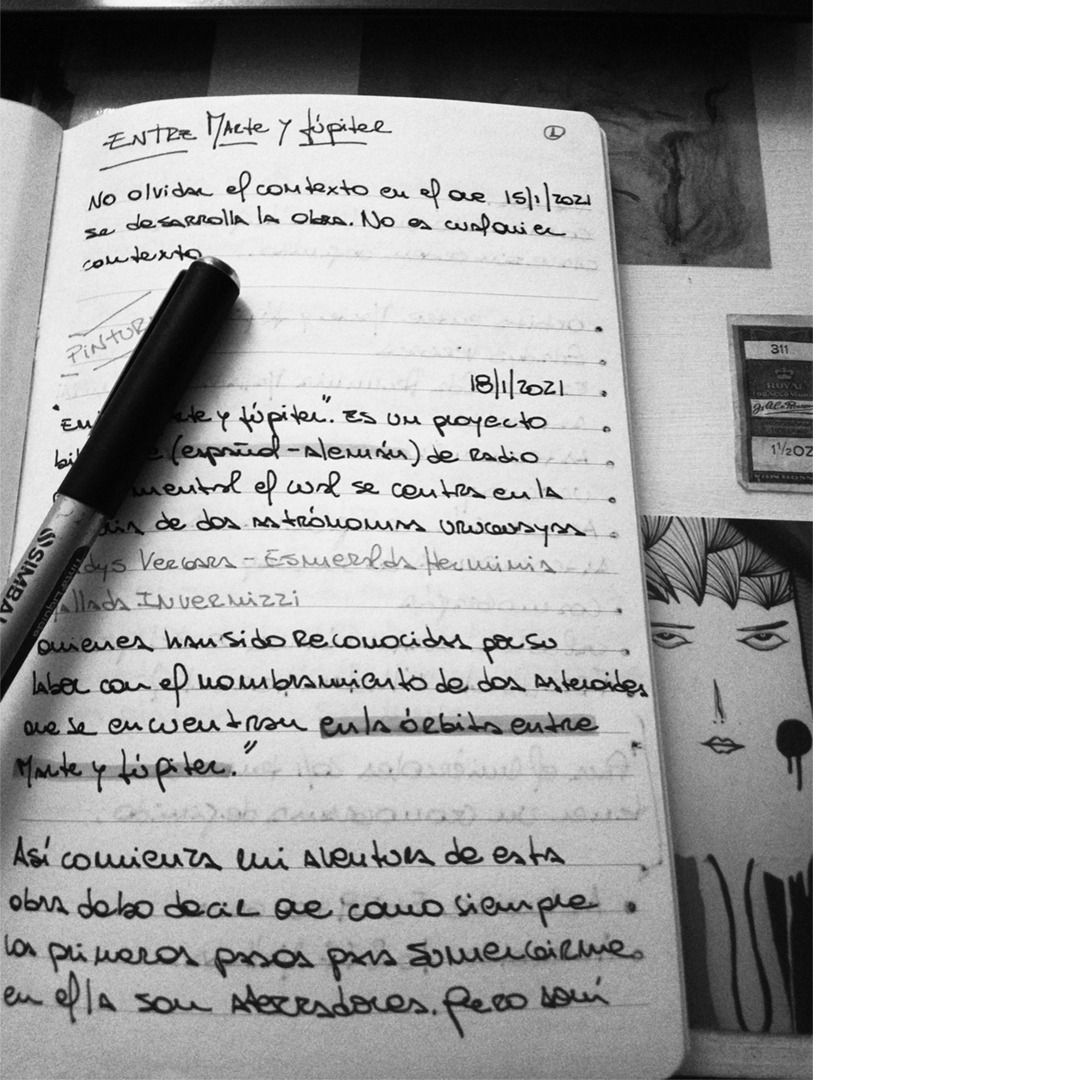 ENTRE MARTE Y JÚPITER
1
No olvidar el contexto en el que 15/1/2021
se desarrolla la obra. No es cualquier
contexto
PINTUR
18/1/2021
Marte y Júpiter". Es un proyecto
(español-Alemán) de Radio
mental el cual se centra en la
de dos astrónomas uruguayas
dys Vergara - Esmeralda Herminia
allada INVERNIZZI
quienes han sido Reconocidas por su
labor con el nombramiento de dos asteroides
que se encuentran en la órbita entre
Marte y Júpiter."
Así comienza mi aventura de esta
obra debo decir que como siempre
los primeros pasos para sumergirme
en ella son aterradores. Pero aquí
SIMBAL
311
ROYAL
1½OZ